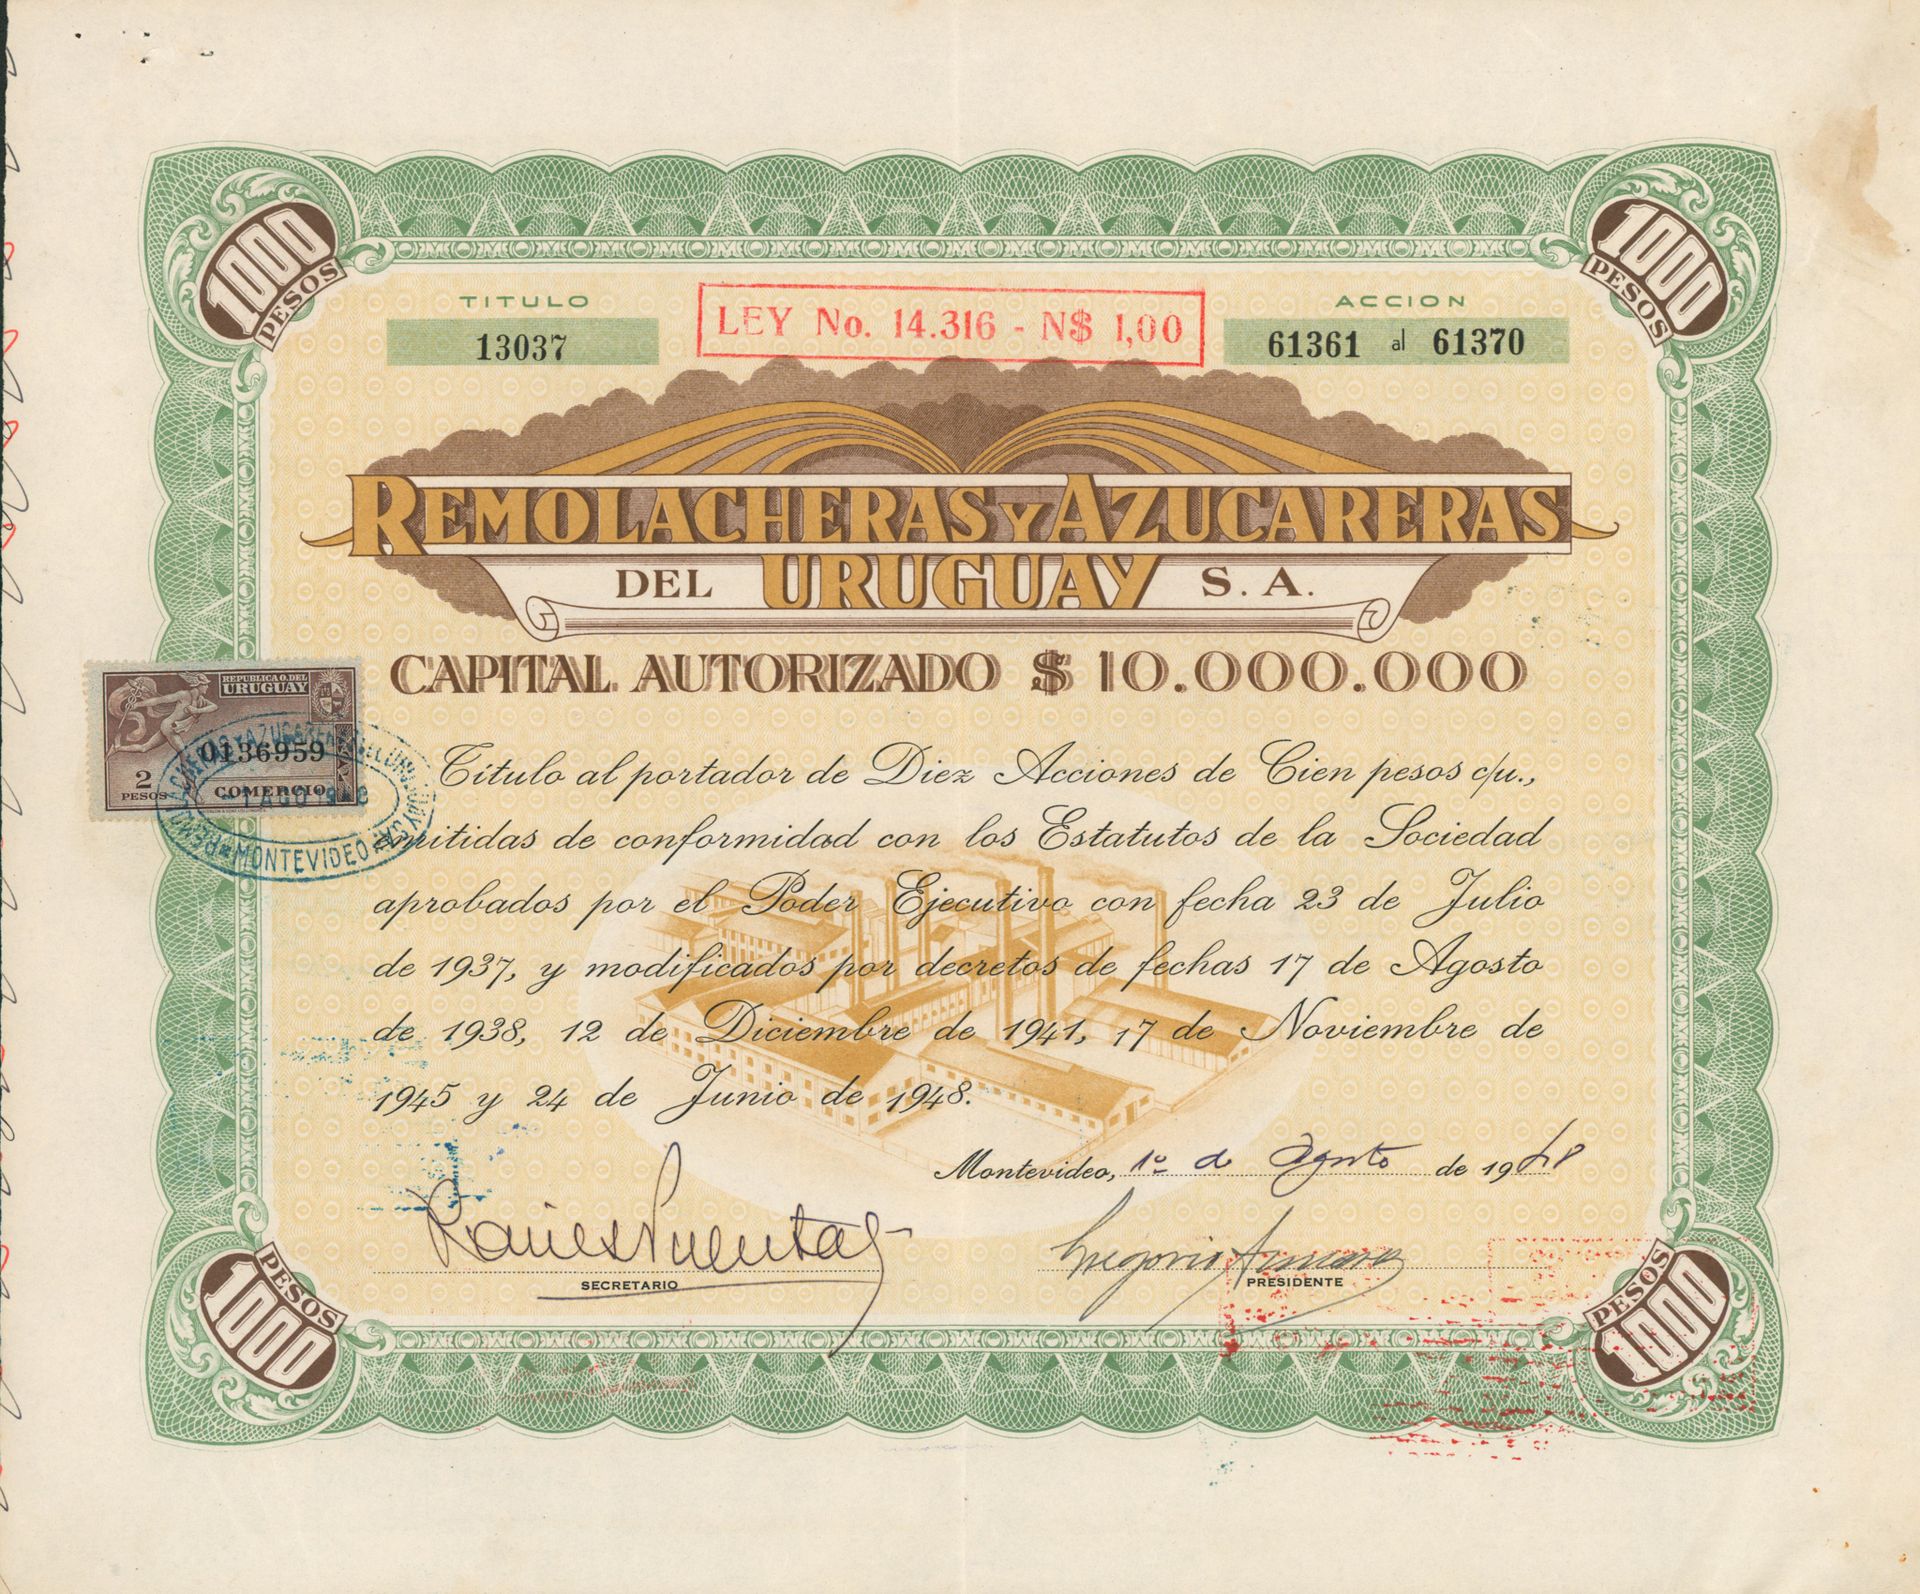 1000 PESOS
1000 PESOS
TITULO
13037
LEY No. 14.316 - N$ 1,00
ACCION
61361 al 61370
REMOLACHERAS Y AZUCARERAS
DEL URUGUAY S. A.
CAPITAL AUTORIZADO $ 10.000.000
REPUBLICA O. DEL
URUGUAY
0136959
2
PESOS
COMERCIO
AZUCARERAS DEL URUGUAY S.A.
1 AGO 19
MONTEVIDEO
Título al portador de Diez Acciones de Cien pesos c/u.,
emitidas de conformidad con los Estatutos de la Sociedad
aprobados por el Poder Ejecutivo con fecha 23 de Julio
de 1937, y modificados por decretos de fechas 17 de Agosto
de 1938, 12 de Diciembre de 1941, 17 de Noviembre de
1945 y 24 de Junio de 1948.
Montevideo, 1º de Agosto de 1948
SECRETARIO
Gregorio
PRESIDENTE
PESOS 1000
PESOS 1000